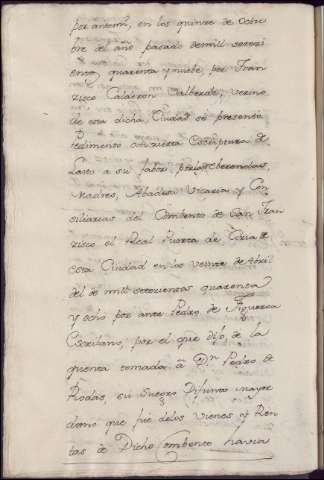 por antemi, en los quinze de Octu
bre del año pasado de mill setezi
entos quarenta y nuebe, por Fran
zisco Calderon Valberde, vezino
de esta dicha Ciudad se presento
Pedimento con zierta Escriptura de
Lasto a su fabor, por las Reberendas,
Madres, Abadesa Vicaria y Con
siliarias del Combento de San Fran
zisco el Real Puerta de Coria de
esta Ciudad en los veinte de Abril
del de mil setezientos quarenta
y ocho por ante Pedro de Figueroa
Escribano, por el que dijo, de la
quenta tomada, a Dn Pedro de
Rodas, su Suegro Difunto mayor
domo que fue de los vienes y Ren
tas de Dicho Combento havia